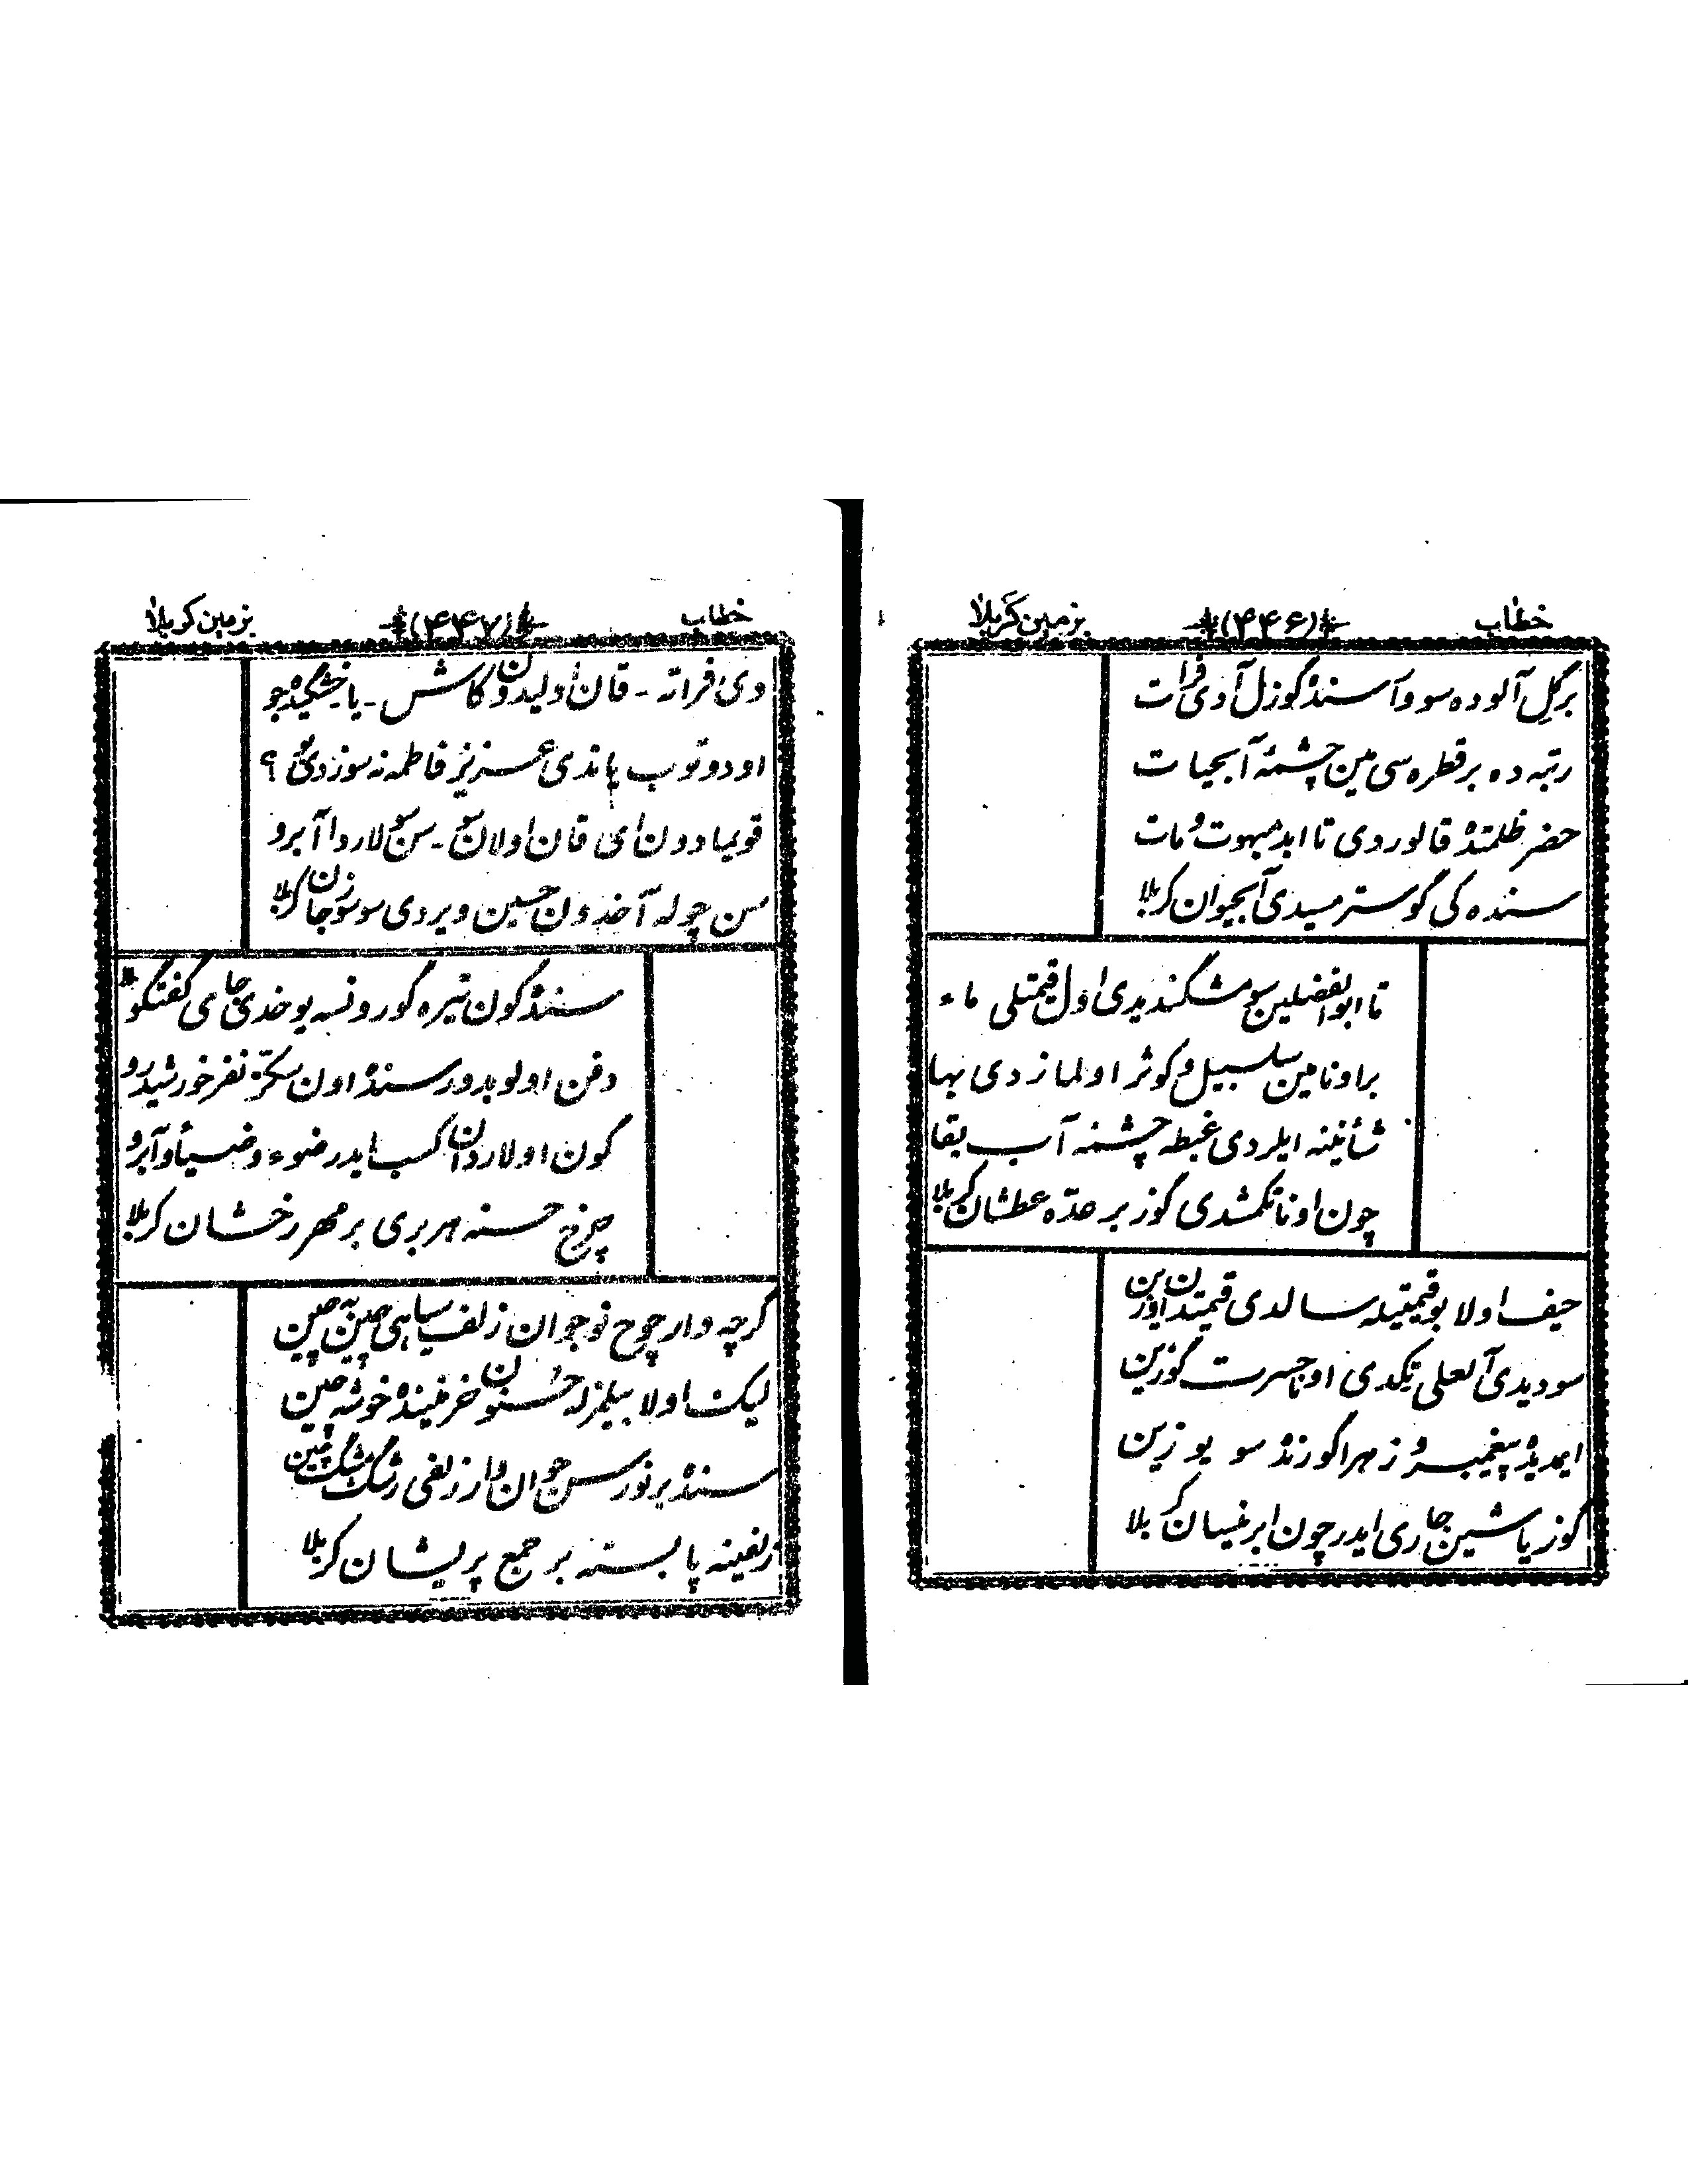 خطاب (۴۴۶) بزمین کربلا
بر گل آلوده سو وار سنده گوزل آدی فرات
رتبه ده بر قطره سی مین چشمهٔ آبحیات
خضر ظلمتده قالوردی تا ابد مبهوت و مات
سنده کی گوسترمسیدی آبحیوان کربلا
تا ابوالفضلین سو مشکنده یدی اول قیمتلی ماء
بر اونا مین سلسبیل و کوثر اولمازدی بها
شأنینه ایلردی غبطه چشمهٔ آب بقا
چون اونا تکمشدی گوز بر عدّه عطشان کربلا
حیف اولا بو قیمتیله سالدی قیمتدن اوزین
سو دیدی آل علی تیکدی اونا حسرت گوزین
ایمدیده پیغمبر و زهرا گورنده سو یوزین
گوز یاشین جاری ایدر چون ابر نیسان کربلا
خطاب (۴۴۷) بزمین کربلا
دی فراته - قان اولیدون کاش - یا خشگیده جو
اودوتوب یاندی عزیز فاطمه نه سوزدی بو ؟
قویمادون ای قان اولان سو - سن سولاردا آبرو
سن چوله آخدون حسین ویردی سوسوز جان کربلا
سنده گون تیره گورونسه یوخدی جای گفتگو
دفن اولوبدور سنده اون سکّز نفر خورشید رو
گون اولاردان کسب ایدر ضوء و ضیأ و آبرو
چرخ حسنه هر بری بر مهر رخشان کربلا
گرچه وار چوخ نوجوان زلف سیاهی چین به چین
لیک اولا بیلمز له حسنون خرمنینده خوشه چین
سنده بر نورس جوان وار زلفی رشگ مشگ چین
زلفینه پابسته بر جمع پریشان کربلا